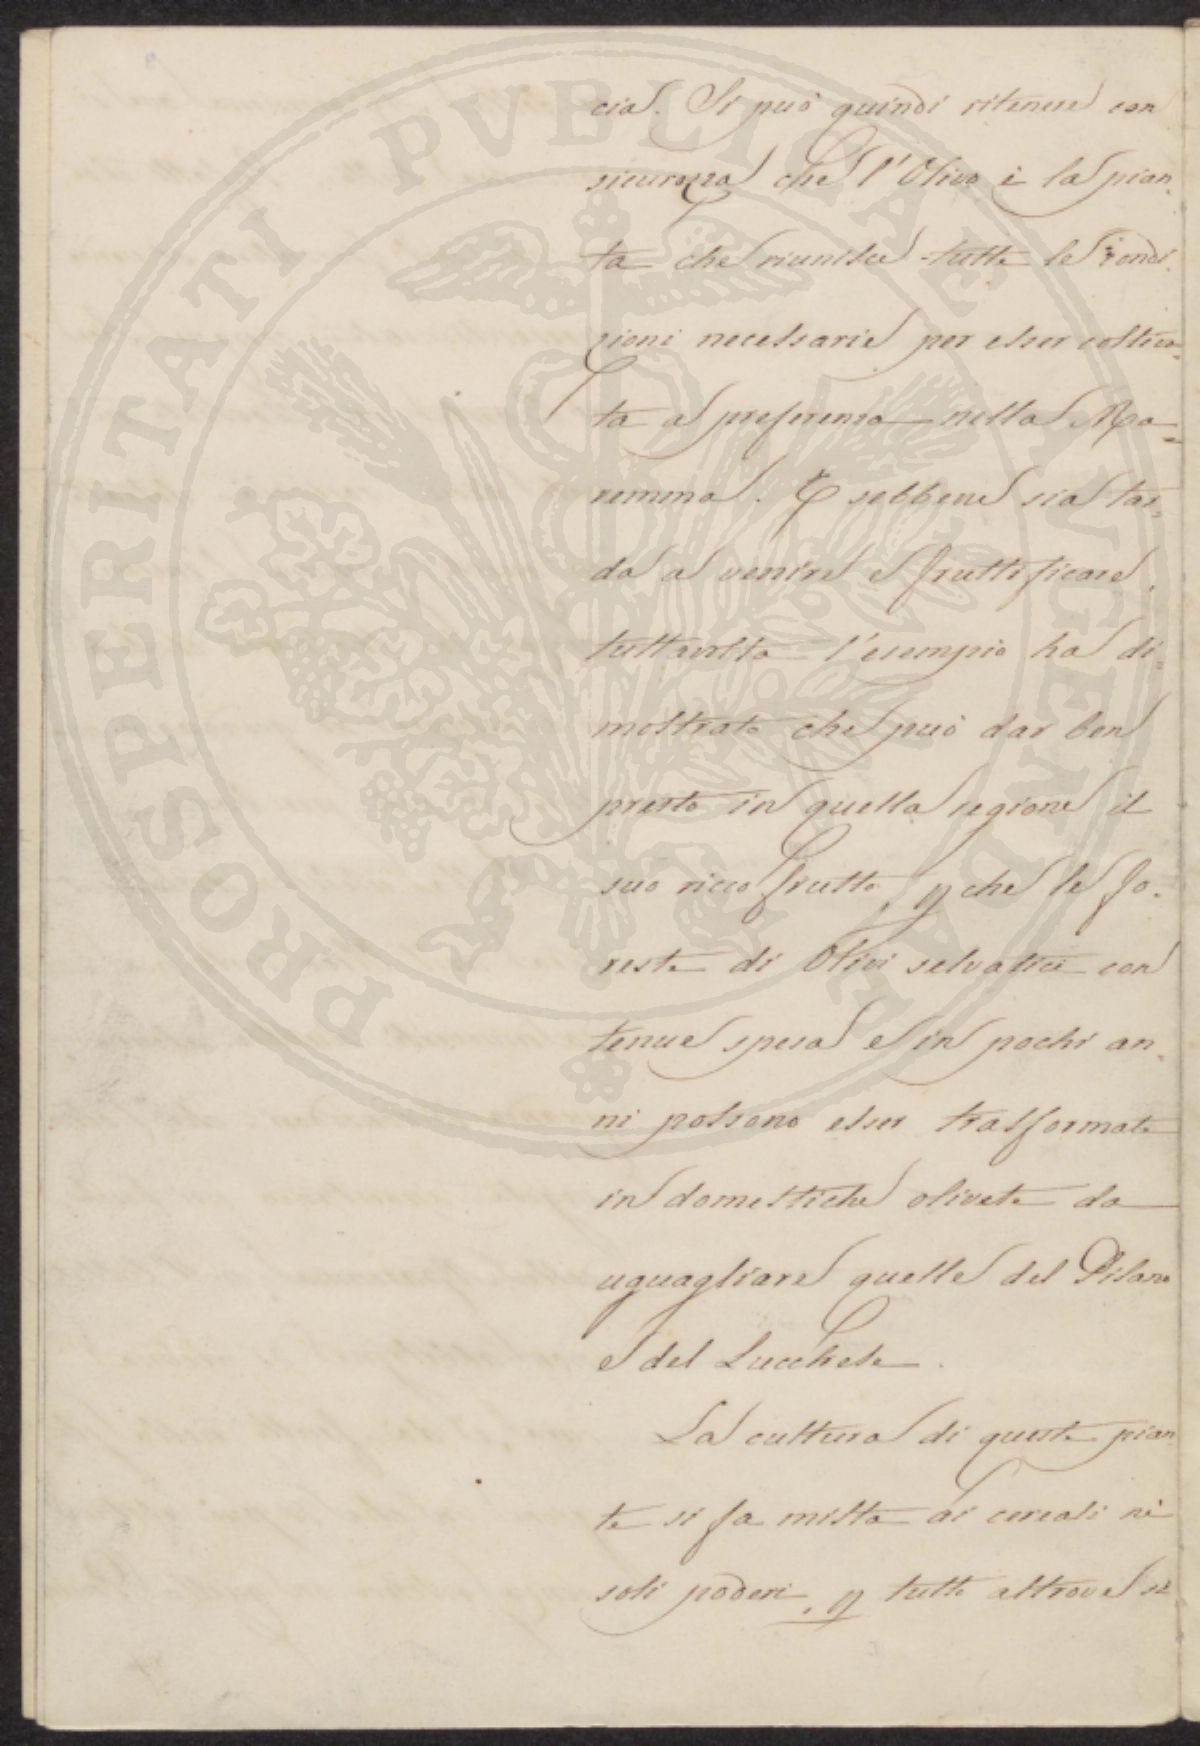 cia. Si può quindi ritenere con
sicurezza che l'Olivo è la pian-
ta che riunisce tutte le condi-
zioni necessarie per esser coltiva-
ta a preferenza nella Ma-
remma. E sebbene sia tar-
da a venire e fruttificare,
tuttavolta l'esempio ha di-
mostrato che può dar ben
presto in quella regione il
suo ricco frutto, e che le fo-
reste di Olivi selvatici con
tenue spesa e in pochi an-
ni possono esser trasformate
in domestiche olivete da
uguagliare quelle del Pisano
e del Lucchese.
La cultura di queste pian-
te si fa mista ai cereali nè
soli poderi, e tutto altrove si
PROSPERITATI PVBLICAE AVGENDAE